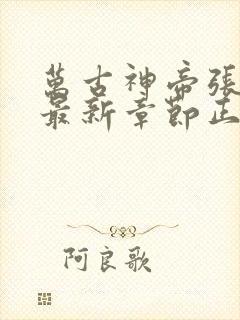 萬古神帝張
最新章節正
阿良歌